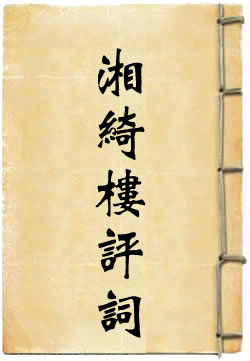 湘綺樓評詞